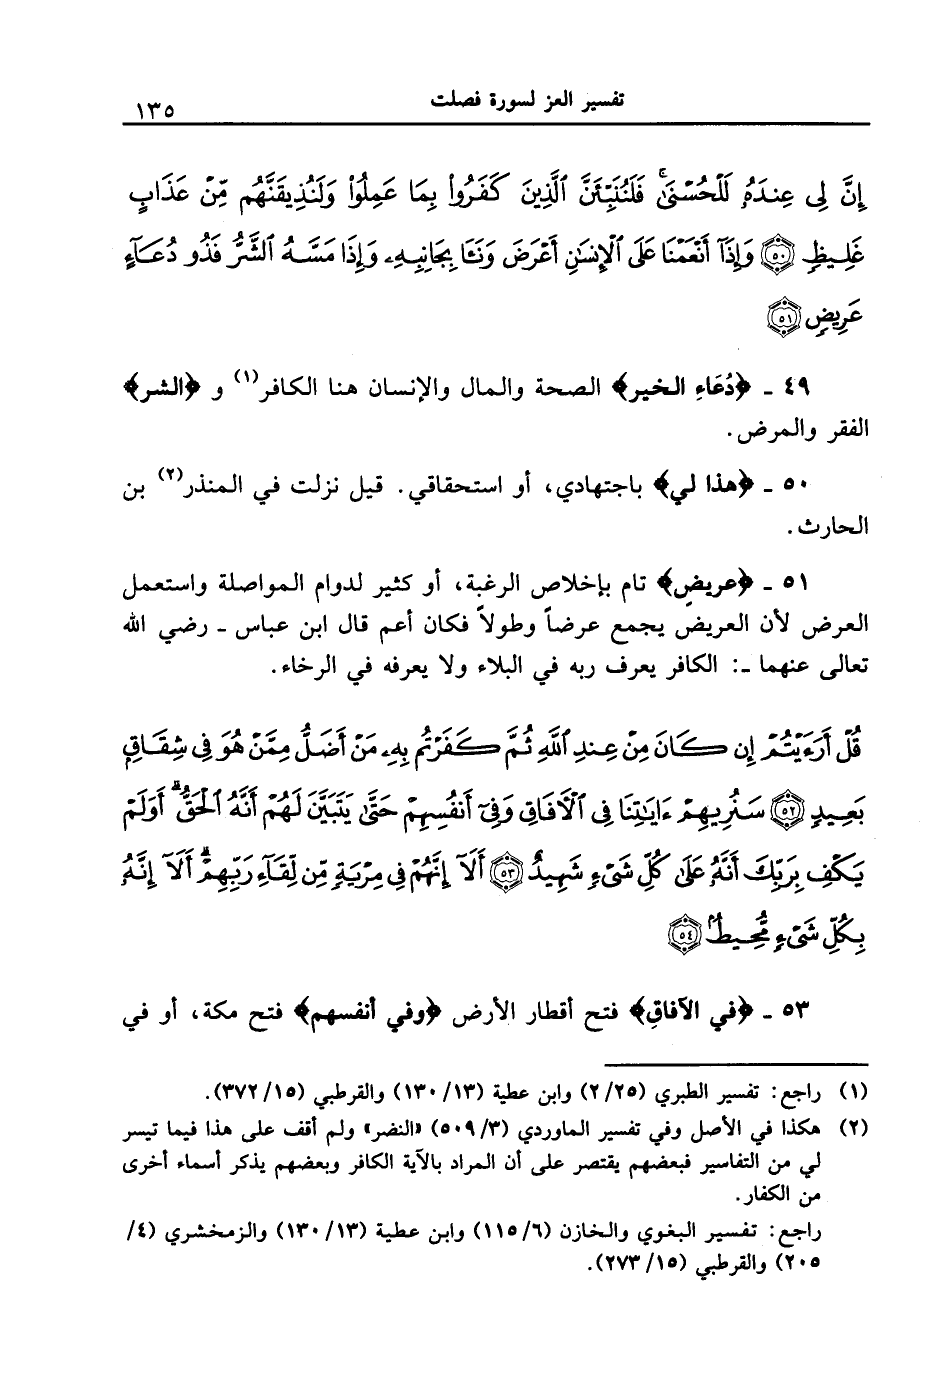 تفسير العز لسورة فصلت
١٣٥
إِنَّ لِي عِندَهُۥ لَلْحُسْنَىٰ ۚ فَلَنُنَبِّئَنَّ ٱلَّذِينَ كَفَرُوا۟ بِمَا عَمِلُوا۟ وَلَنُذِيقَنَّهُم مِّنْ عَذَابٍ
غَلِيظٍ ﴿٥٠﴾ وَإِذَآ أَنْعَمْنَا عَلَى ٱلْإِنسَٰنِ أَعْرَضَ وَنَـَٔا بِجَانِبِهِۦ وَإِذَا مَسَّهُ ٱلشَّرُّ فَذُو دُعَآءٍ
عَرِيضٍ ﴿٥١﴾
٤٩ ـ ﴿دُعَاءِ الخير﴾ الصحة والمال والإنسان هنا الكافر(١) و ﴿الشر﴾
الفقر والمرض.
٥٠ ـ ﴿هذا لي﴾ باجتهادي، أو استحقاقي. قيل نزلت في المنذر(٢) بن
الحارث.
٥١ ـ ﴿عريضٍ﴾ تام بإخلاص الرغبة، أو كثير لدوام المواصلة واستعمل
العرض لأن العريض يجمع عرضاً وطولاً فكان أعم قال ابن عباس ـ رضي الله
تعالى عنهما ـ: الكافر يعرف ربه في البلاء ولا يعرفه في الرخاء.
قُلْ أَرَءَيْتُمْ إِن كَانَ مِنْ عِندِ ٱللَّهِ ثُمَّ كَفَرْتُم بِهِۦ مَنْ أَضَلُّ مِمَّنْ هُوَ فِى شِقَاقٍۭ
بَعِيدٍ ﴿٥٢﴾ سَنُرِيهِمْ ءَايَٰتِنَا فِى ٱلْـَٔافَاقِ وَفِىٓ أَنفُسِهِمْ حَتَّىٰ يَتَبَيَّنَ لَهُمْ أَنَّهُ ٱلْحَقُّ ۗ أَوَلَمْ
يَكْفِ بِرَبِّكَ أَنَّهُۥ عَلَىٰ كُلِّ شَىْءٍ شَهِيدٌ ﴿٥٣﴾ أَلَآ إِنَّهُمْ فِى مِرْيَةٍ مِّن لِّقَآءِ رَبِّهِمْ ۗ أَلَآ إِنَّهُۥ
بِكُلِّ شَىْءٍ مُّحِيطٌۢ ﴿٥٤﴾
٥٣ ـ ﴿في الآفاقِ﴾ فتح أقطار الأرض ﴿وفي أنفسهم﴾ فتح مكة، أو في
(١) راجع: تفسير الطبري (٢/٢٥) وابن عطية (١٣٠/١٣) والقرطبي (٣٧٢/١٥).
(٢) هكذا في الأصل وفي تفسير الماوردي (٥٠٩/٣) «النضر» ولم أقف على هذا فيما تيسر
لي من التفاسير فبعضهم يقتصر على أن المراد بالآية الكافر وبعضهم يذكر أسماء أخرى
من الكفار.
راجع: تفسير البغوي والخازن (١١٥/٦) وابن عطية (١٣٠/١٣) والزمخشري (٤/
٢٠٥) والقرطبي (٢٧٣/١٥).